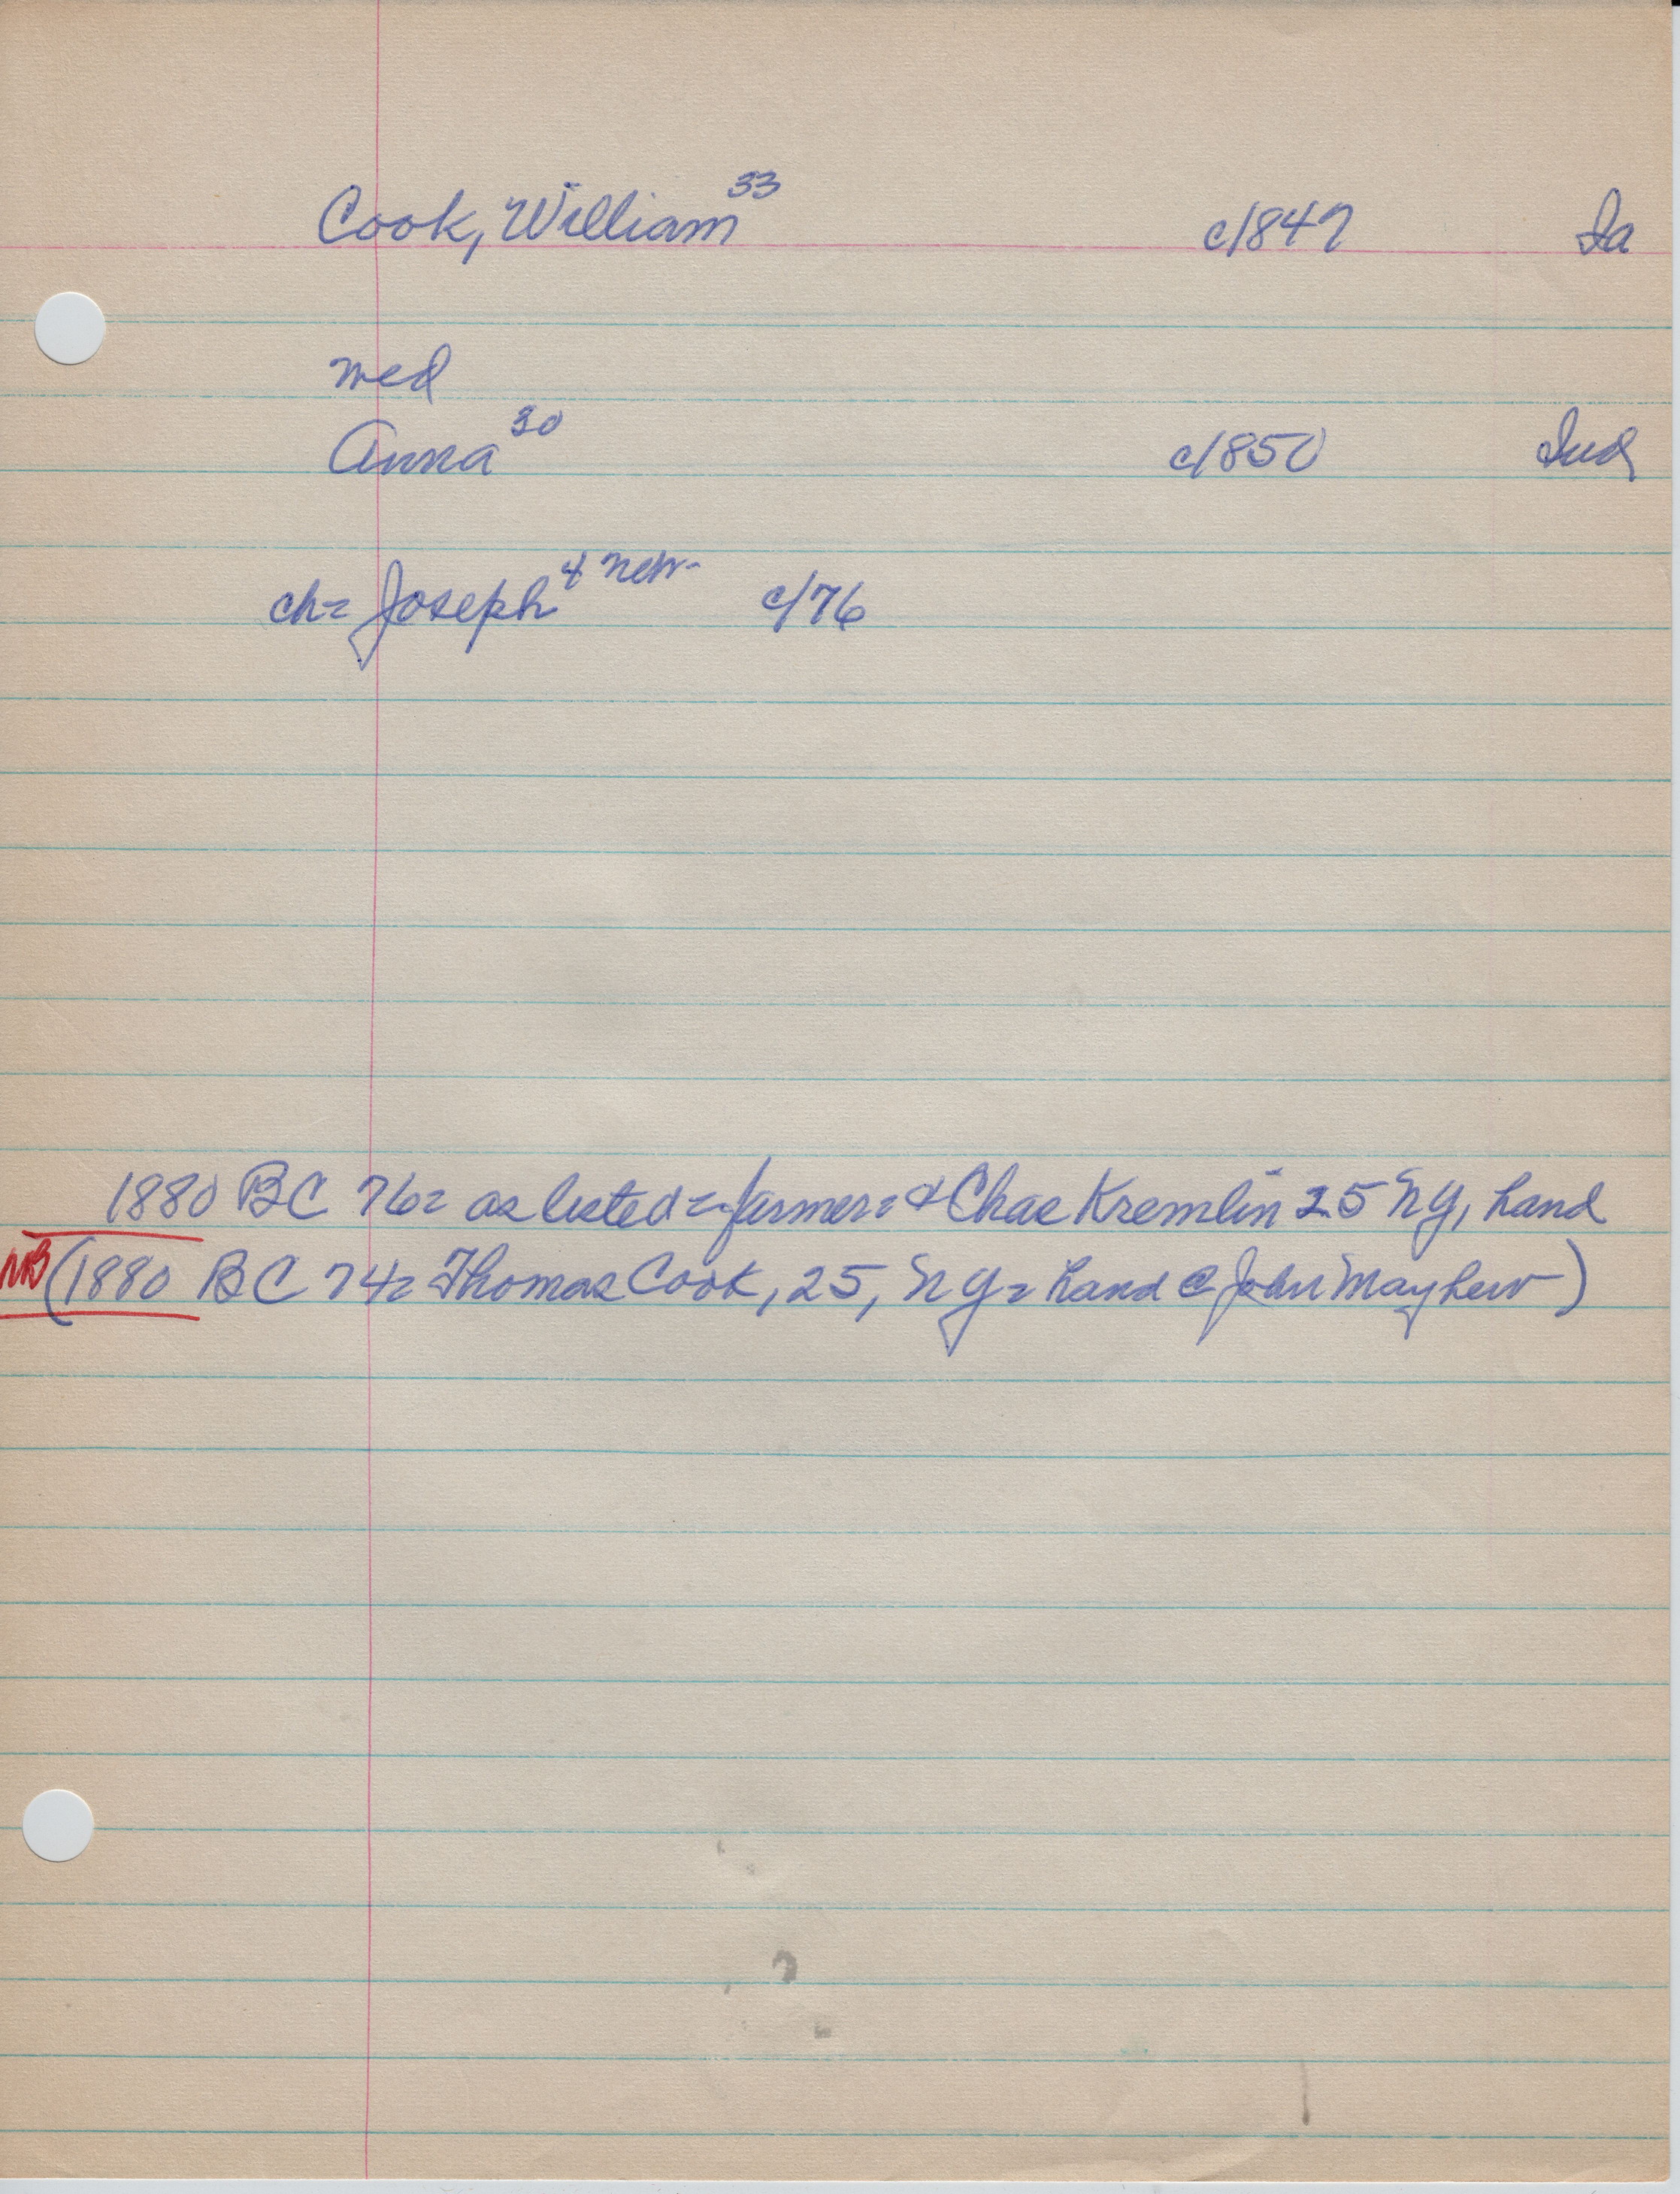 Cook, William 33 c/1847 Ia
med
Anna 30 c/1850 Ind
ch= Joseph 4 Nebr. c/76
1880 BC 76= as listed=farmer= & Chas Kremlin 25 NY, hand
NB (1880 BC 74= Thomas Cook, 25, NY= hand @ John Mayhew)